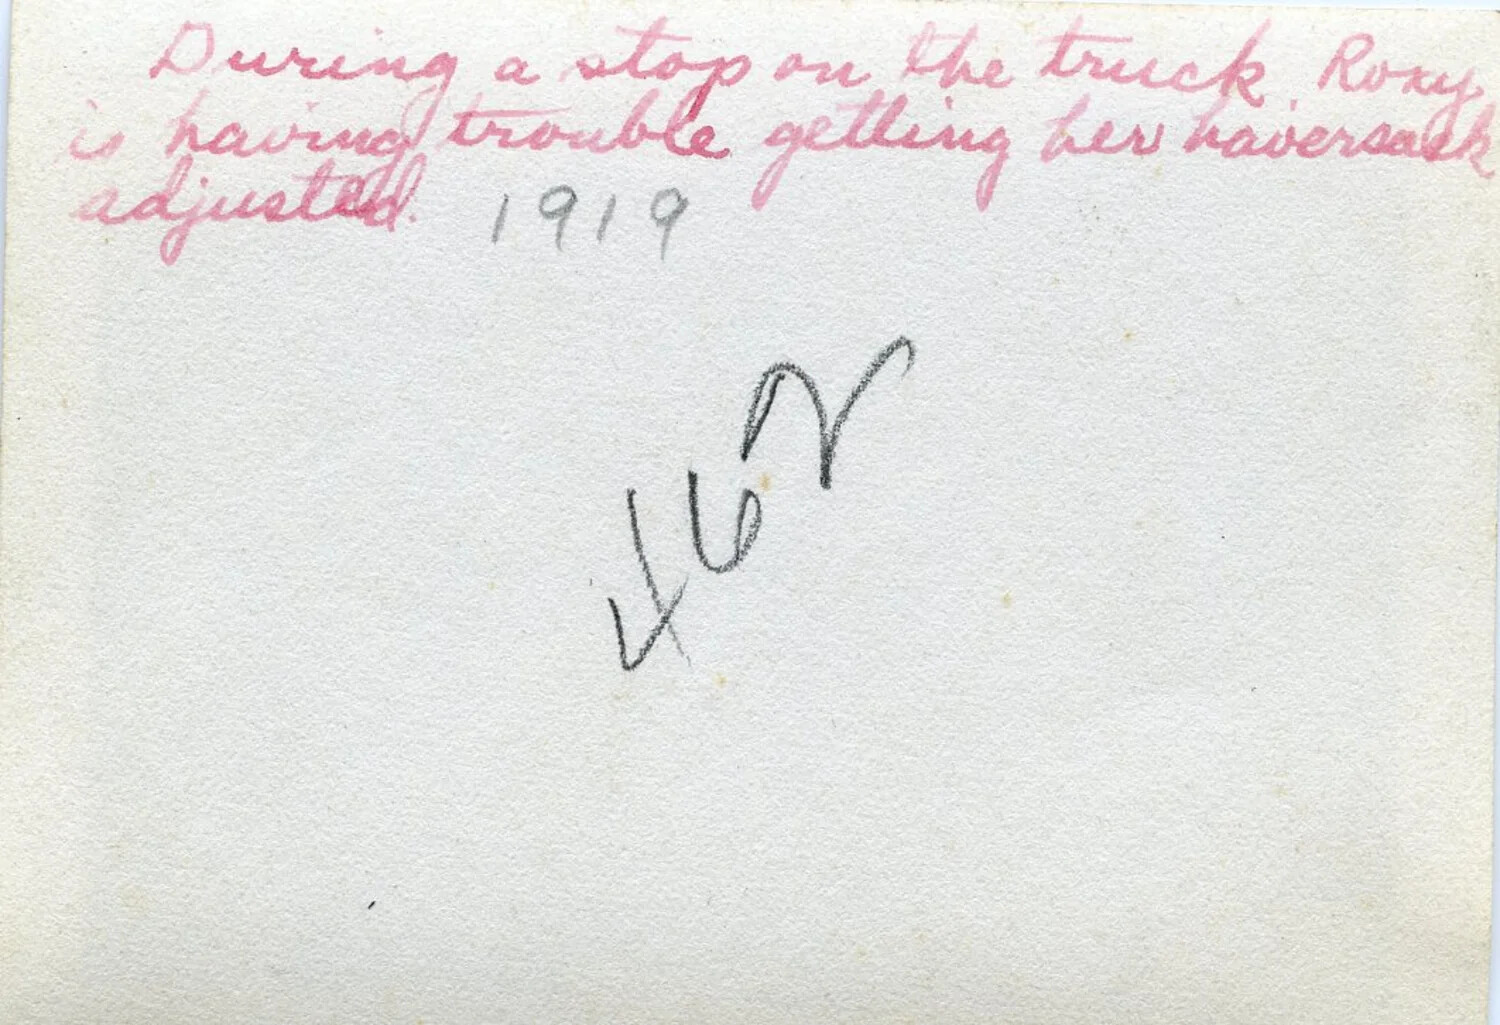 During a stop on the truck. Roxy
is having trouble getting her haversack
adjusted. 1919